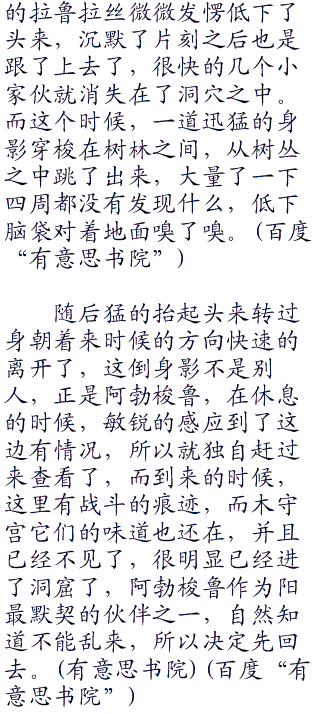 的拉鲁拉丝微微发愣低下了
头来，沉默了片刻之后也是
跟了上去了，很快的几个小
家伙就消失在了洞穴之中。
而这个时候，一道迅猛的身
影穿梭在树林之间，从树丛
之中跳了出来，大量了一下
四周都没有发现什么，低下
脑袋对着地面嗅了嗅。(百度
“有意思书院”)
随后猛的抬起头来转过
身朝着来时候的方向快速的
离开了，这倒身影不是别
人，正是阿勃梭鲁，在休息
的时候，敏锐的感应到了这
边有情况，所以就独自赶过
来查看了，而到来的时候，
这里有战斗的痕迹，而木守
宫它们的味道也还在，并且
已经不见了，很明显已经进
了洞窟了，阿勃梭鲁作为阳
最默契的伙伴之一，自然知
道不能乱来，所以决定先回
去。(有意思书院)(百度“有
意思书院”)